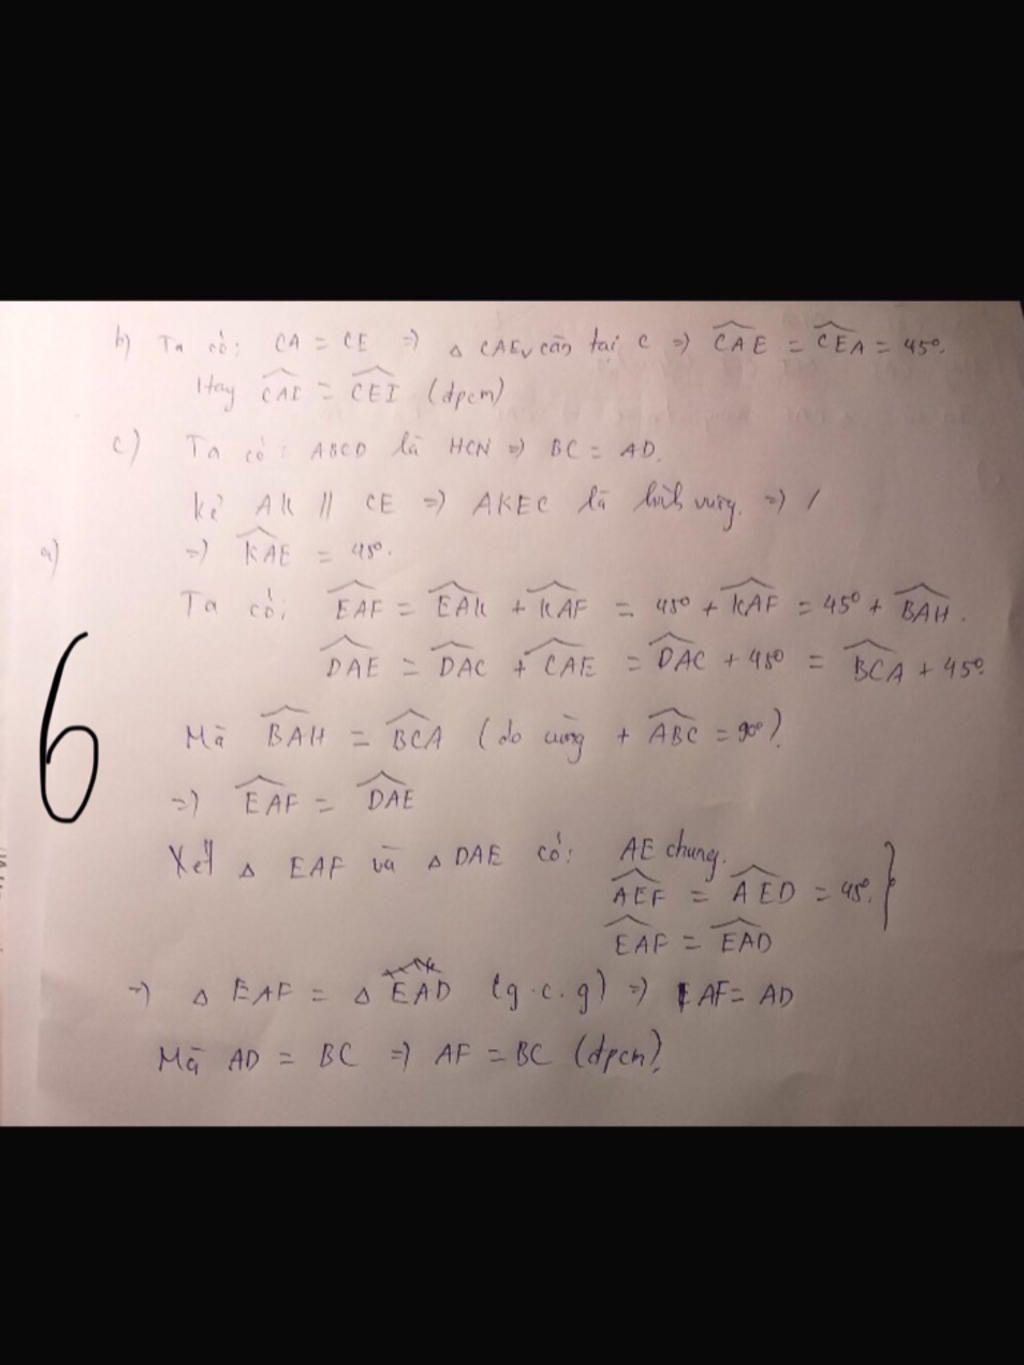 b) Ta có: CA = CE => △ CAE v cân tại C => CAE = CEA = 45°.
Hay CAI = CEI (đpcm)
c) Ta có: ABCD là HCN => BC = AD.
kẻ AK // CE => AKEC là hình vuông. => /
a) => KAE = 45°.
Ta có: EAF = EAK + KAF = 45° + KAF = 45° + BAH.
DAE = DAC + CAE = DAC + 45° = BCA + 45°.
6
Mà BAH = BCA (do cùng + ABC = 90°)
=> EAF = DAE
Xét △ EAF và △ DAE có: AE chung.
AEF = AED = 45°.
EAF = EAD
=> △ EAF = △ EAD (g.c.g) => AF = AD
Mà AD = BC => AF = BC (đpcm)